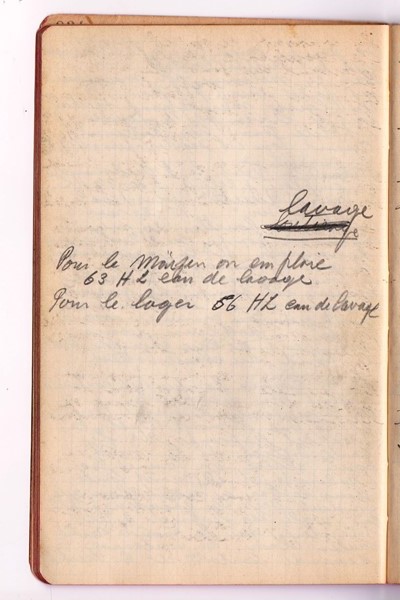 lavage
Pour le Märzen on emploie
63 HL eau de lavage
Pour le lager 56 HL eau de lavage